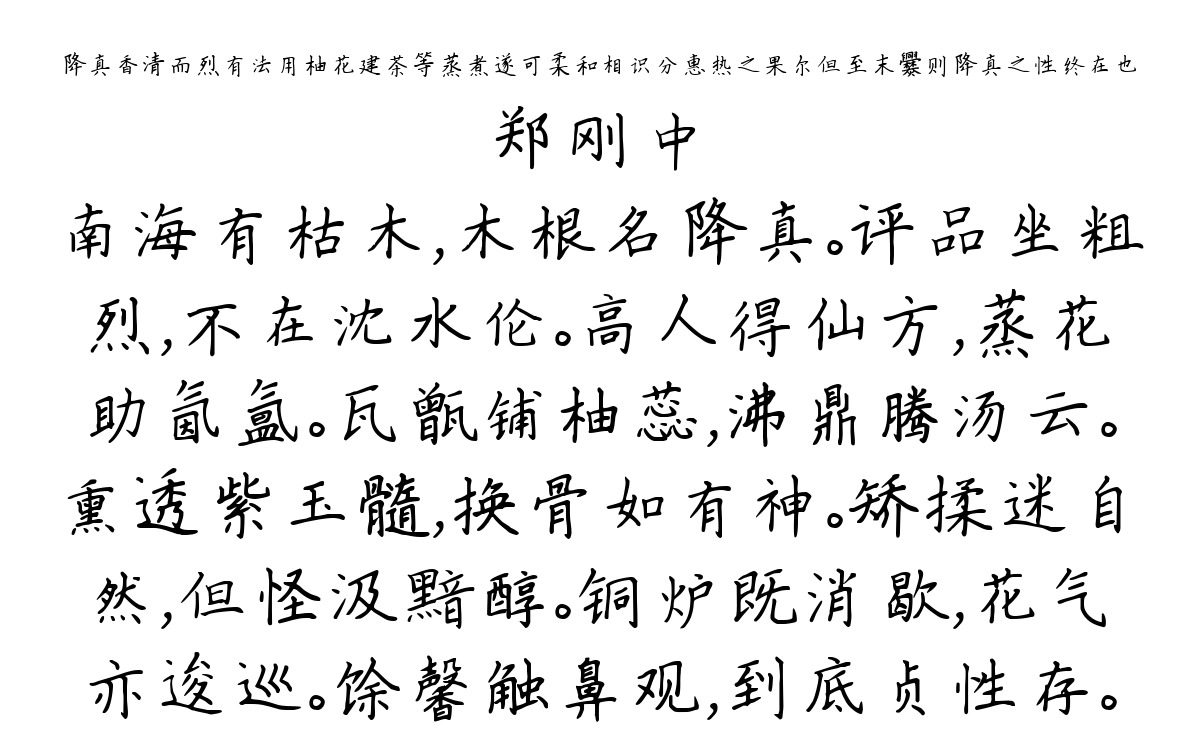 降真香清而烈有法用柚花建茶等蒸煮遂可柔和相识分惠热之果尔但至末爨则降真之性终在也
郑刚中
南海有枯木,木根名降真。评品坐粗
烈,不在沈水伦。高人得仙方,蒸花
助氤氲。瓦甑铺柚蕊,沸鼎腾汤云。
熏透紫玉髓,换骨如有神。矫揉迷自
然,但怪汲黯醇。铜炉既消歇,花气
亦逡巡。馀馨触鼻观,到底贞性存。